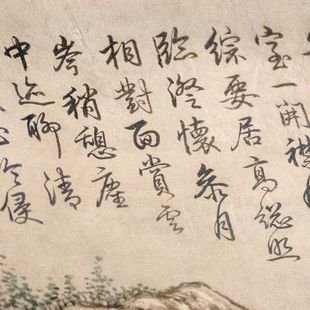 室一開襟
綜要居高
臨澄懷叅月
相對面賞雲
岑稍憩塵
中迹聊清
侵